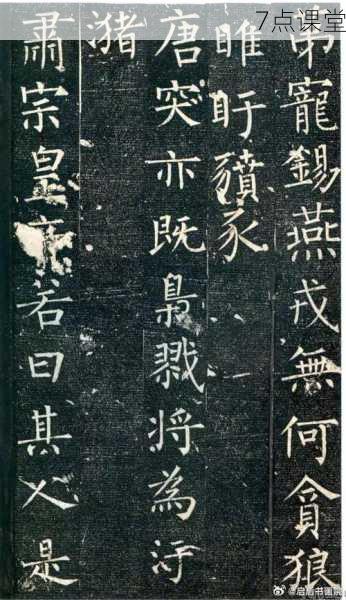 7点课堂
第寵錫燕戎無何貪狼
睢盱豶豕
唐突亦既梟戮將為汙
潴
肅宗皇帝若曰其人是